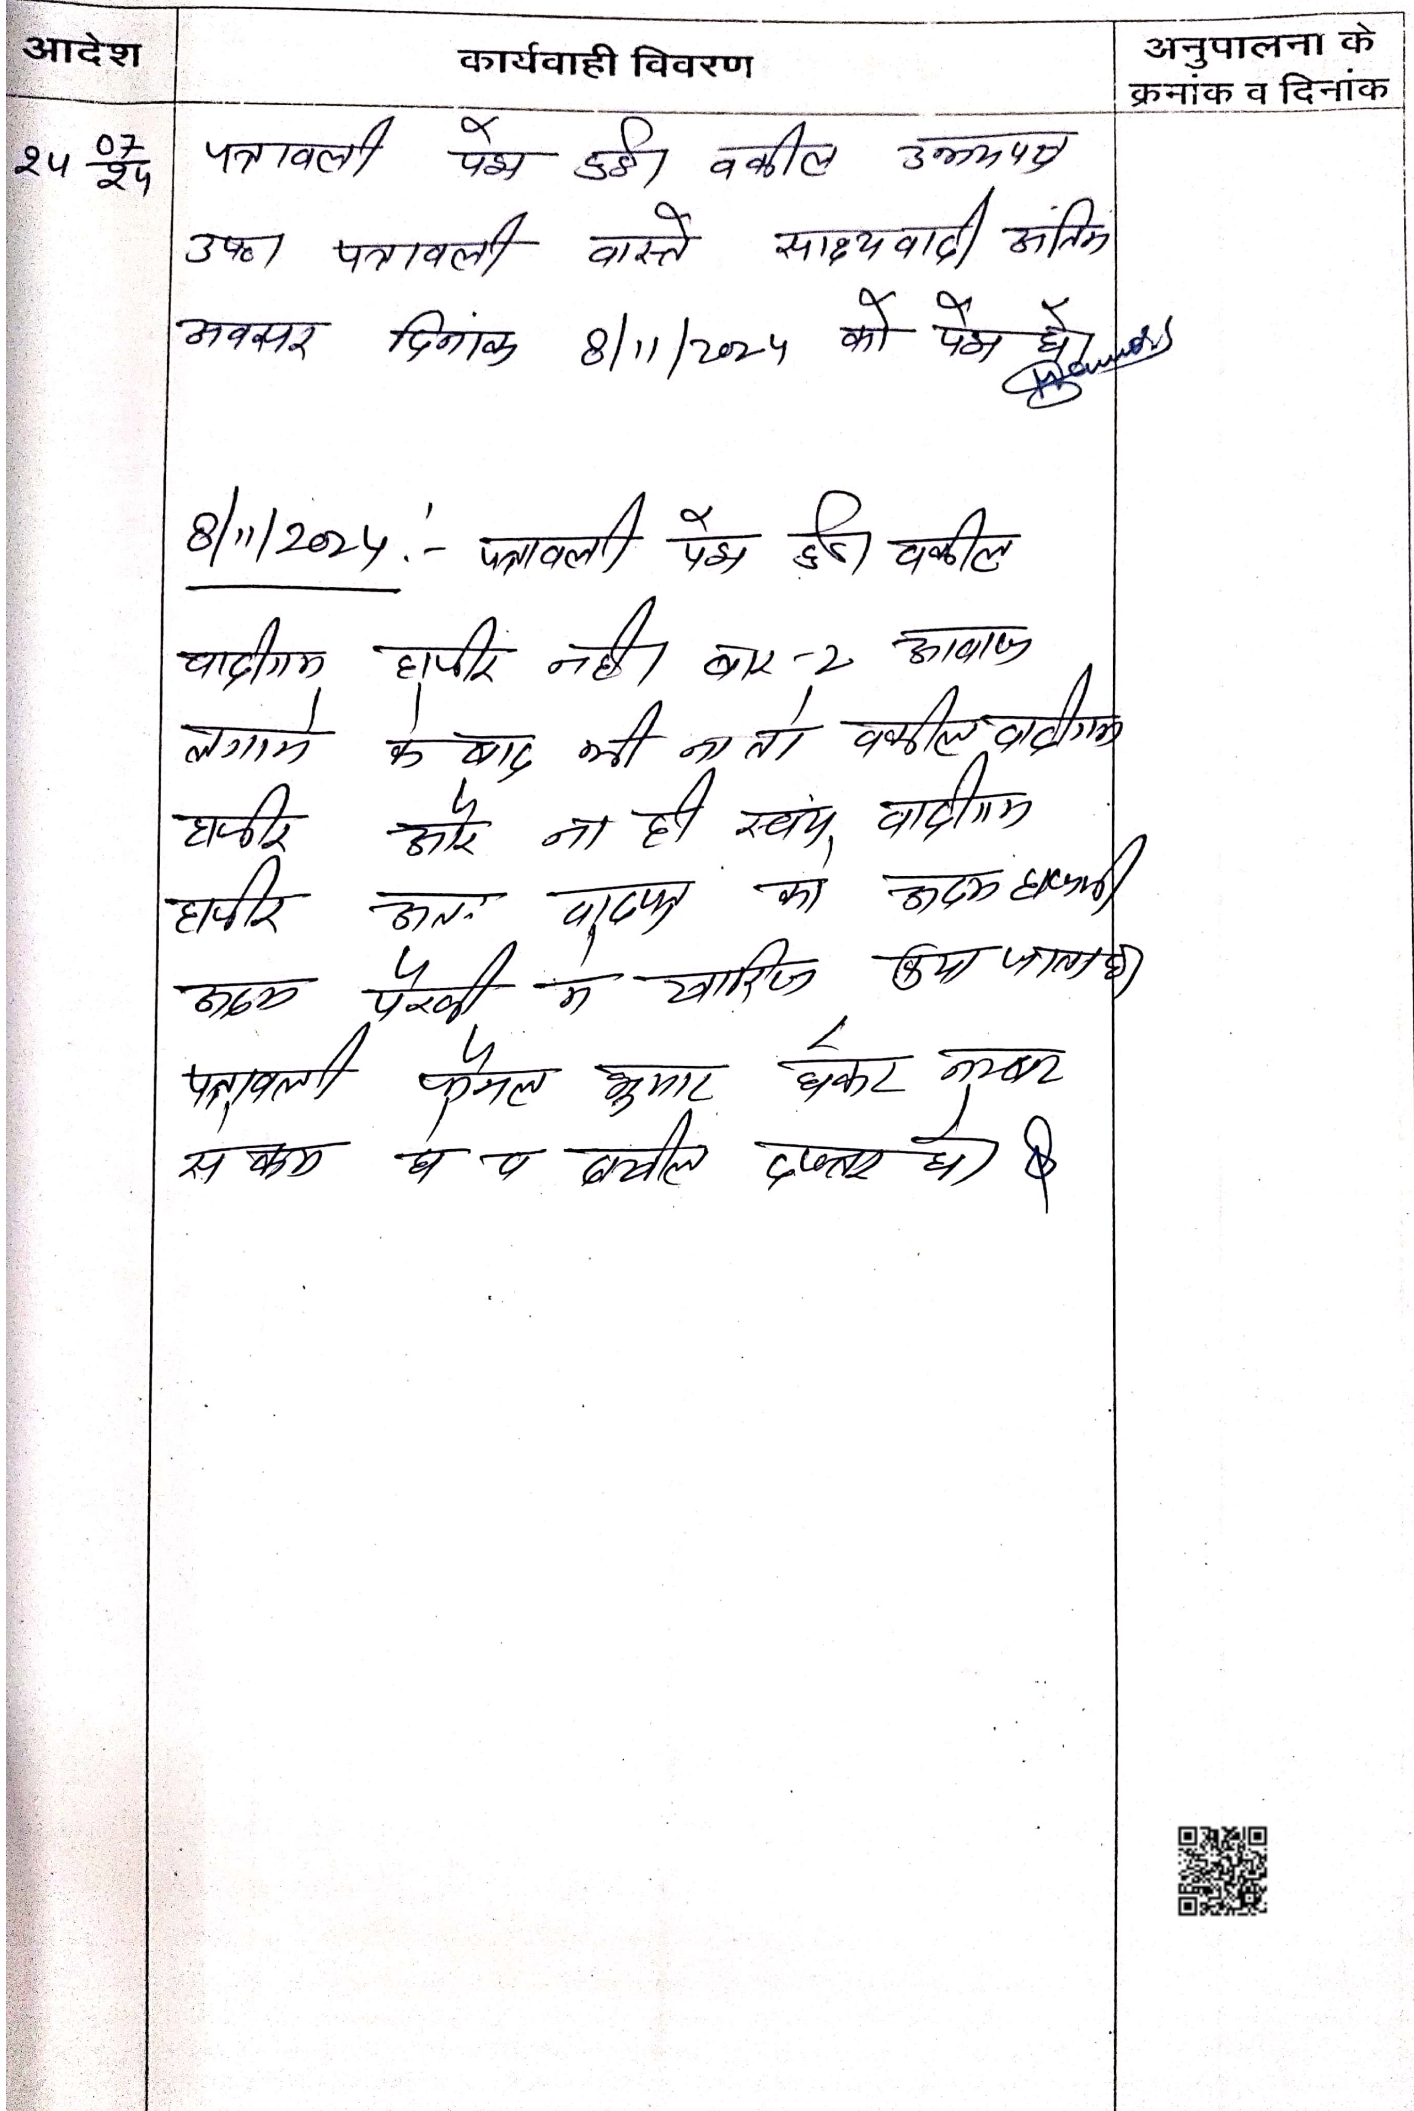 आदेश
कार्यवाही विवरण
अनुपालना के
क्रमांक व दिनांक
24 07/24
पत्रावली पेश हुई। वकील उभयपक्ष
उप0। पत्रावली वास्ते साक्ष्यवादी अंतिम
अवसर दिनांक 8/11/2024 को पेश हो।
8/11/2024 :- पत्रावली पेश हुई। वकील
वादीगण हाजीर नही। बार-2 आवाज
लगाने के बाद भी ना तो वकील वादीगण
हाजीर और ना ही स्वंय वादीगण
हाजीर अतः वादपत्र को अदम हाजरी
अदम पैरवी मे खारिज किया जाता है।
पत्रावली फैसल शुमार होकर नम्बर
से कम हो व दाखील दफ्तर हो।